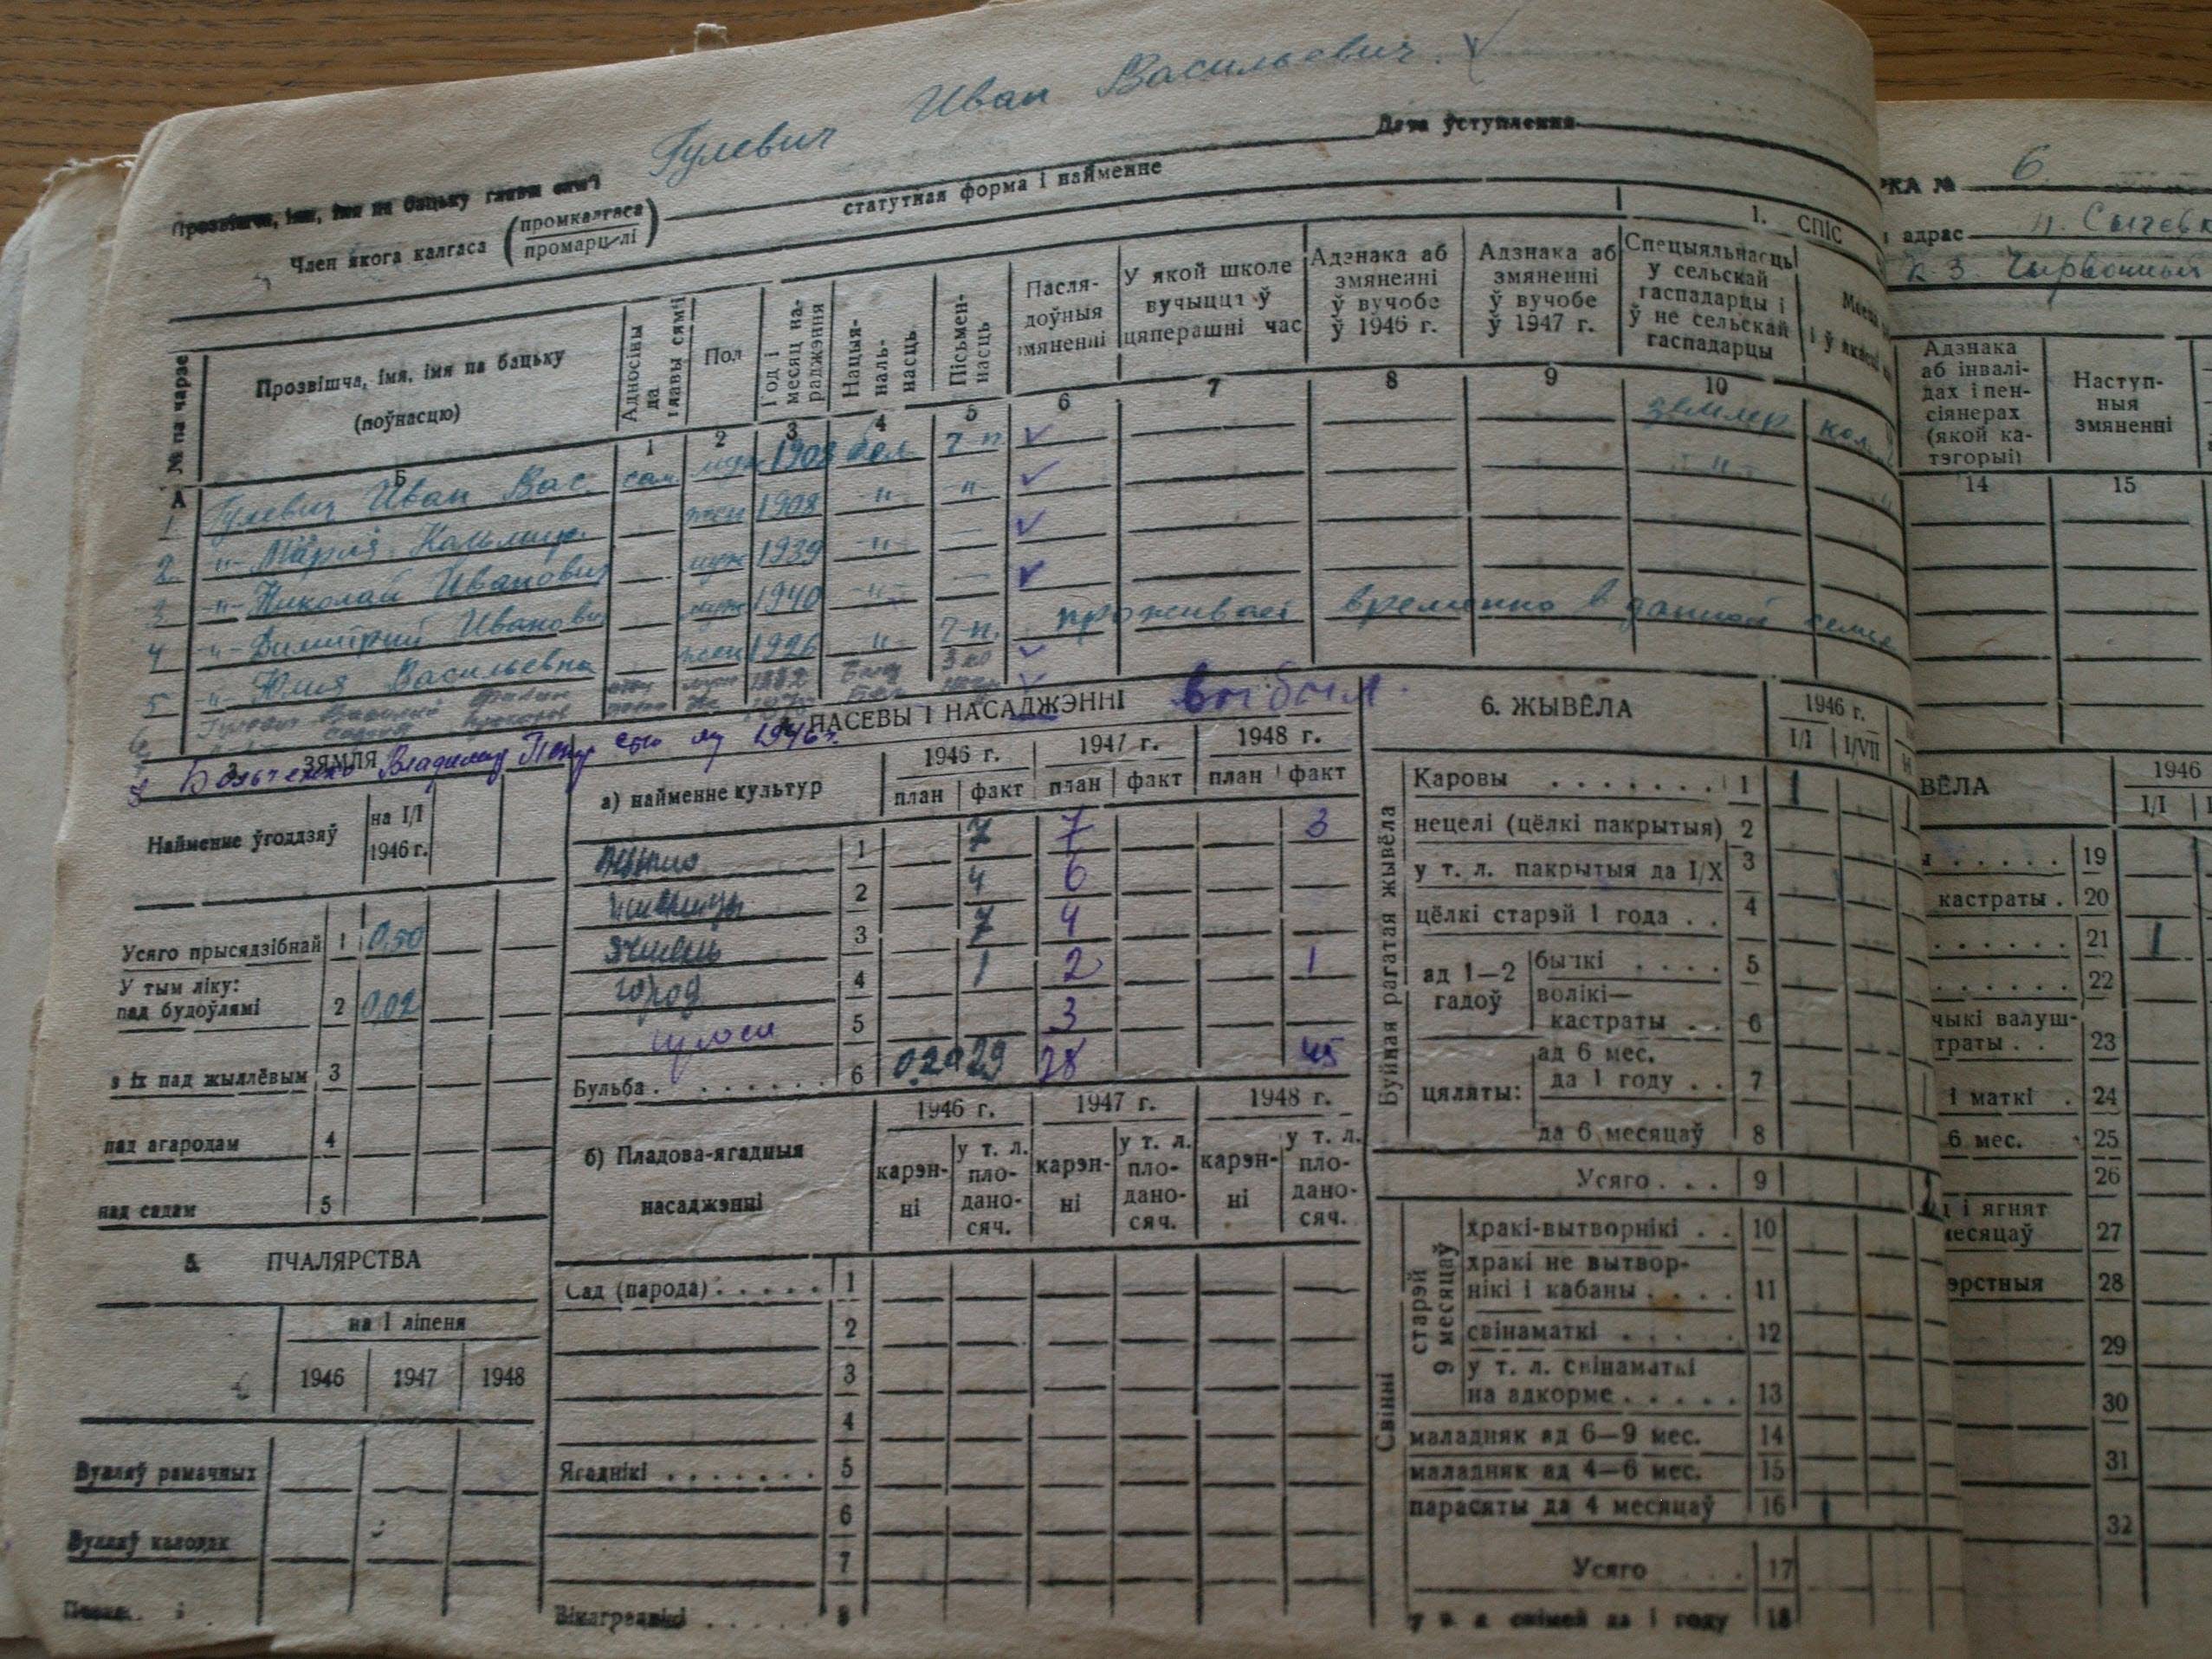 Гулевич Иван Васильевич
Прозвішча, імя, імя па бацьку главы сям'і
Дата ўступлення
Член якога калгаса (промкалгаса / промарцелі)
статутная форма і найменне
1. СПІС
№ па парадку
Прозвішча, імя, імя па бацьку (поўнасцю)
Адносіны да главы сямі
Пол
Год і месяц нараджэння
Нацыянальнасць
Пісьменнасць
Пасля-
доўныя
змяненні
У якой школе
вучыцца ў
цяперашні час
Адзнака аб
змяненні
ў вучобе
ў 1946 г.
Адзнака аб
змяненні
ў вучобе
ў 1947 г.
Спецыяльнасць
у сельскай
гаспадарцы і
ў не сельскай
гаспадарцы
А Б 1 2 3 4 5 6 7 8 9 10
1 Гулевич Иван Вас. сам муж 1908 бел. 7 п. землед кол.
2 -"- Мария жен 1908 " "
3 -"- Николай Иванович муж 1939 "
4 -"- Димитрий Иванович муж 1940 "
5 -"- Юлия Васильевна жен 1926 " 7 п. проживает временно в данной семье
6 Гулевич Василий
8 Владимир 1946 г. выбыл.
ЗЯМЛЯ
Найменне ўгоддзяў
на I/I
1946 г.
Усяго прысядзібнай 1 0,50
У тым ліку:
пад будоўлямі 2 0,02
з іх пад жыллёвым 3
пад агародам 4
пад садам 5
5. ПЧАЛЯРСТВА
на I ліпеня
1946 1947 1948
Вулляў рамачных
Вулляў калодак
ПАСЕВЫ І НАСАДЖЭННІ
а) найменне культур
1946 г. 1947 г. 1948 г.
план факт план факт план факт
Жыто 1 7 7 3
пшаніца 2 4 6
Ячмень 3 7 4
горох 4 1 2 1
просо 5 3
Бульба 6 0.29 29 28 45
б) Пладова-ягадныя
насаджэнні
1946 г. 1947 г. 1948 г.
карэн-
ні
у т. л.
пло-
дано-
сяч.
карэн-
ні
у т. л.
пло-
дано-
сяч.
карэн-
ні
у т. л.
пло-
дано-
сяч.
Сад (парода) 1
2
3
4
Ягаднікі 5
6
7
Вінаграднікі 8
6. ЖЫВЁЛА
1946 г.
I/I I/VII
Буйная рагатая жывёла
Каровы 1 1
нецелі (цёлкі пакрытыя) 2
у т. л. пакрытыя да I/X 3
цёлкі старэй 1 года 4
ад 1—2
гадоў
бычкі 5
волікі—
кастраты 6
цяляты:
ад 6 мес.
да 1 году 7
да 6 месяцаў 8
Усяго 9
Свінні
старэй 9 месяцаў
хракі-вытворнікі 10
хракі не вытвор-
нікі і кабаны 11
свінаматкі 12
у т. л. свінаматкі
на адкорме 13
маладняк ад 6—9 мес. 14
маладняк ад 4—6 мес. 15
парасяты да 4 месяцаў 16 1
Усяго 17
18
РКА № 6
адрас п. Сычевк
к-з Чырвонный
Адзнака
аб інвалі-
дах і пен-
сіянерах
(якой ка-
тэгорыі)
Наступ-
ныя
змяненні
14 15
ВЁЛА
1946
I/I
19
кастраты 20
21 1
22
чыкі валуш-
траты 23
і маткі 24
6 мес. 25
26
і ягнят
месяцаў 27
эрстныя 28
29
30
31
32